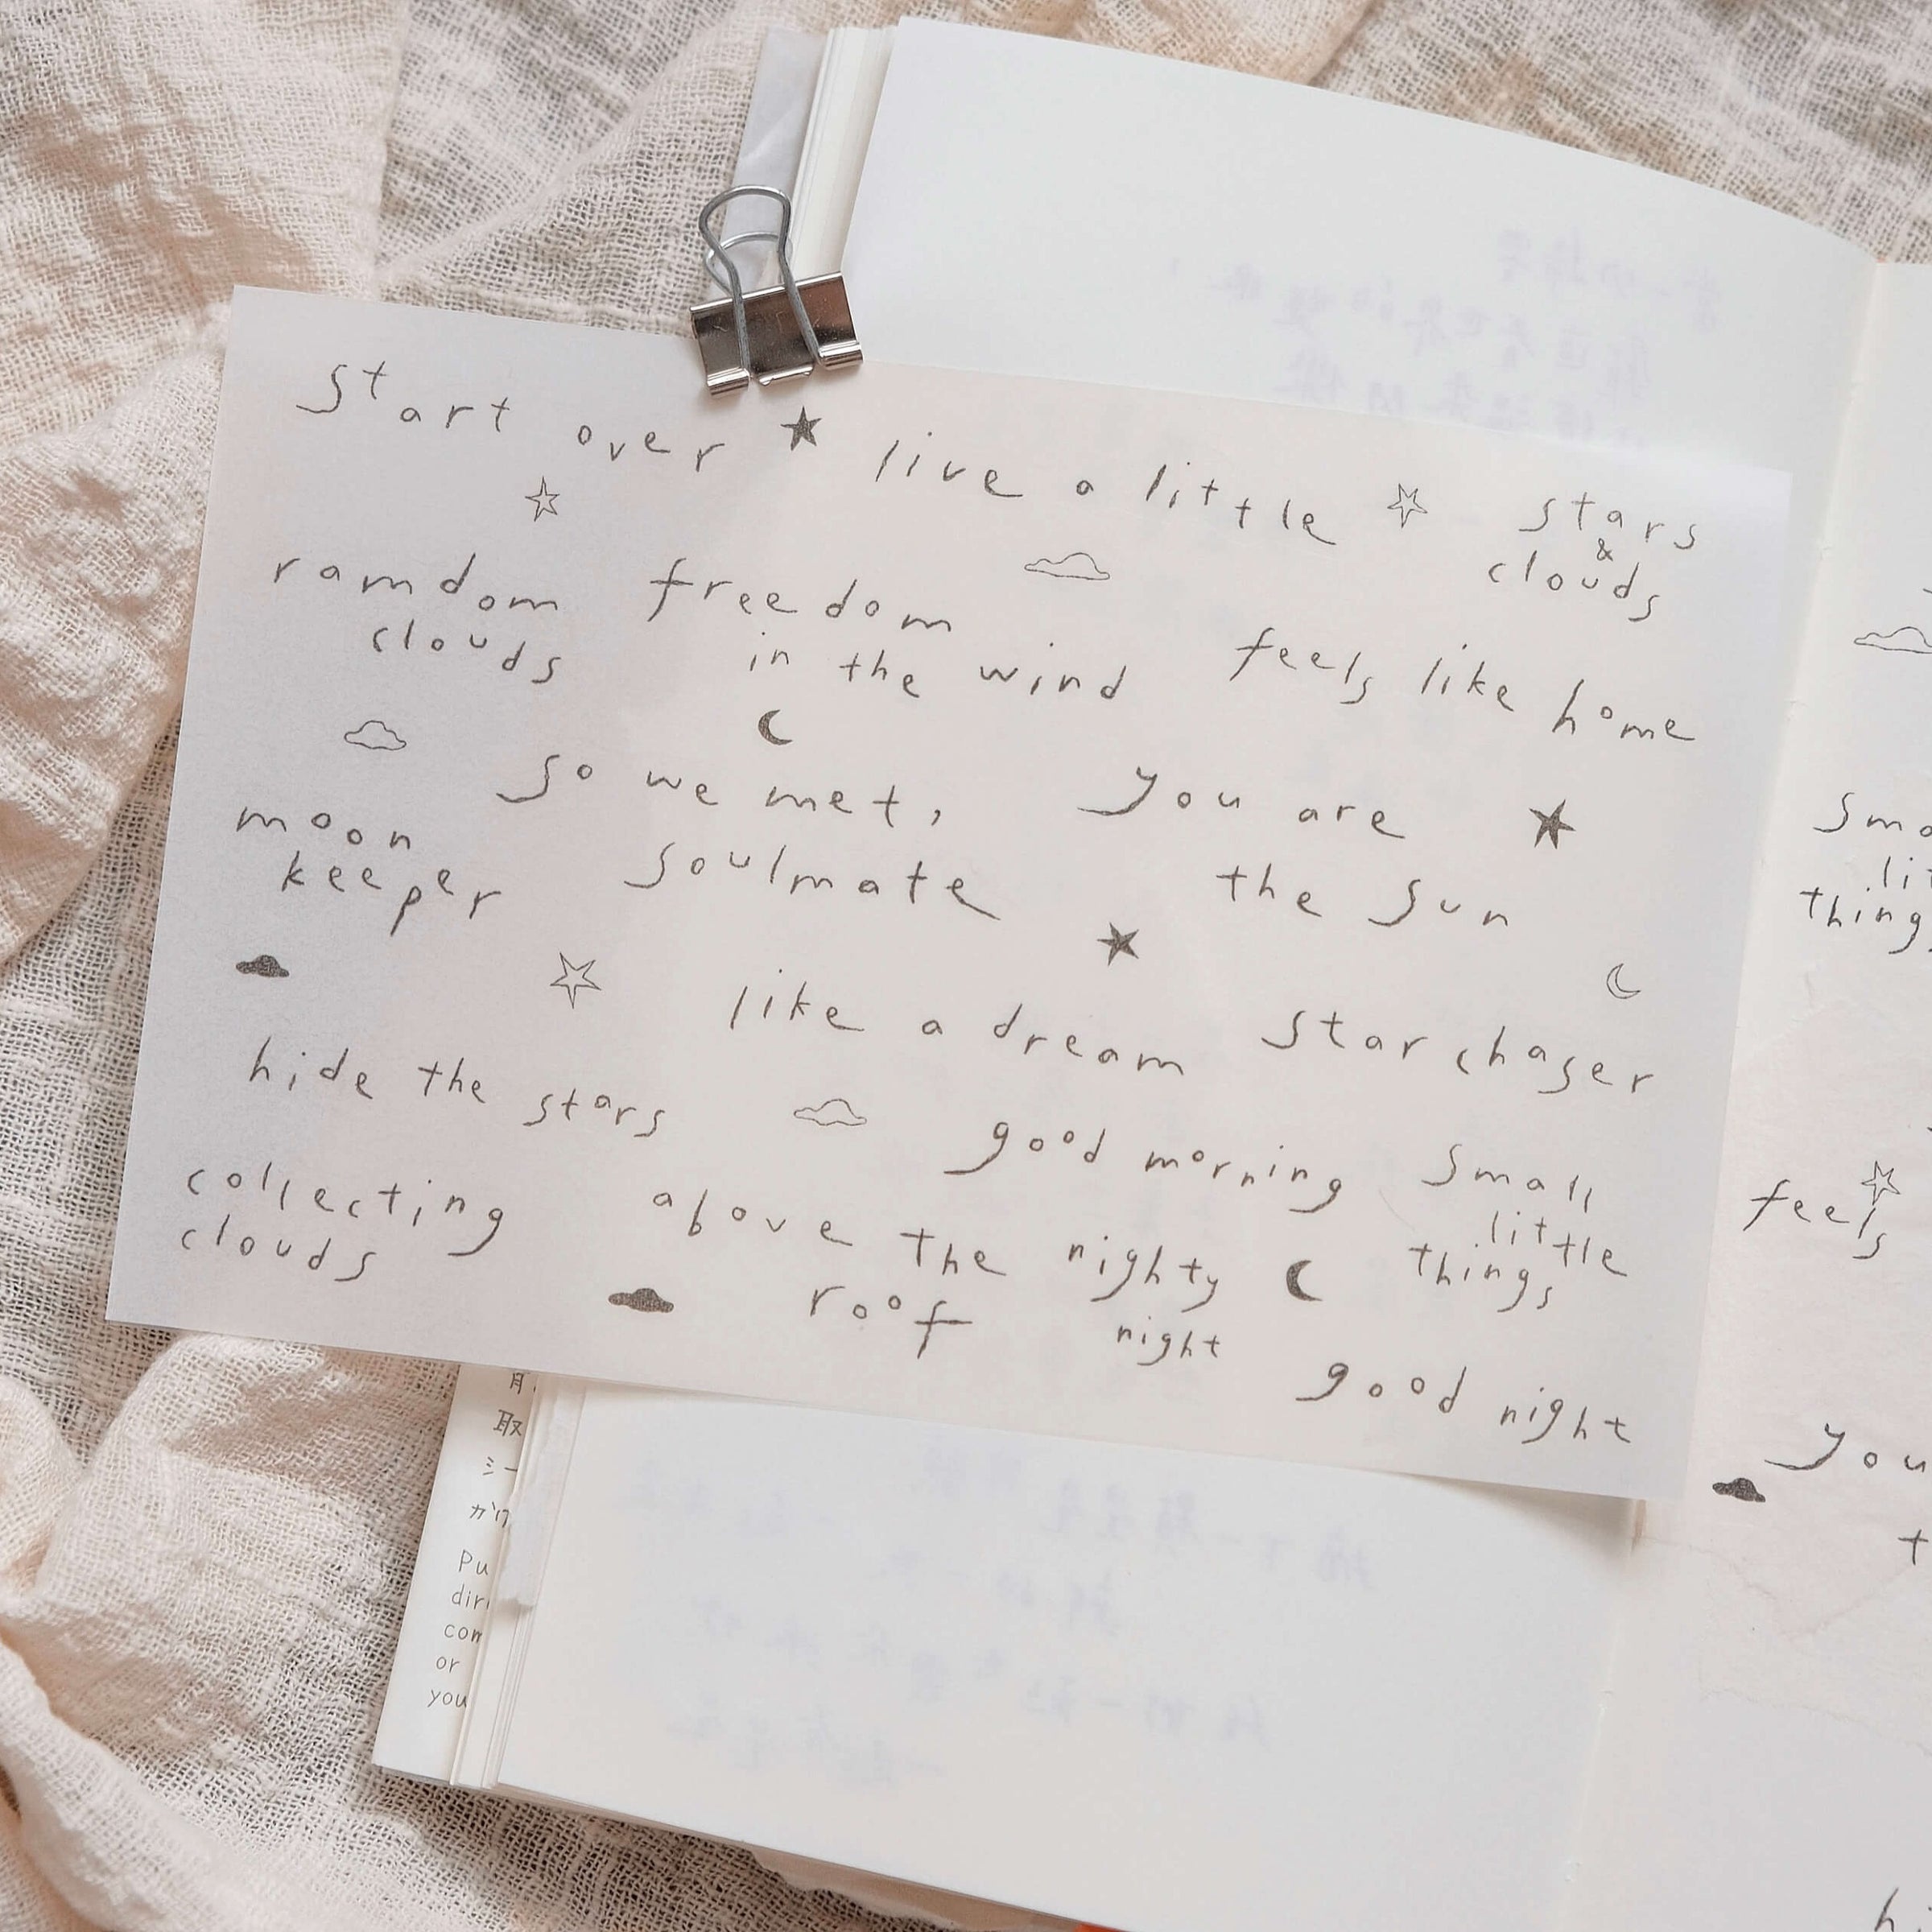 start over live a little stars
&
clouds
ramdom freedom
clouds in the wind feels like home
so we met, you are
moon
keeper soulmate the sun
like a dream star chaser
hide the stars
good morning small
little
things
collecting
clouds
above the nighty
roof night
good night
取
シー
Pu
dir
com
or
you
Smo
lit
things
feels
you
t
h